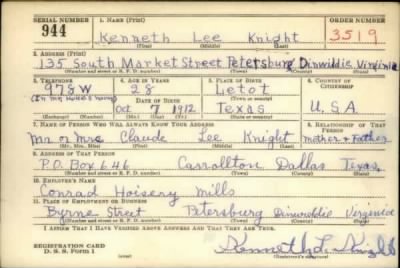 SERIAL NUMBER 1. NAME (Print) ORDER NUMBER
944 Kenneth Lee Knight 3519
(First) (Middle) (Last)
2. ADDRESS (Print)
135 South Market Street Petersburg Dinwiddie Virginia
(Number and street or R. F. D. number) (Town) (County) (State)
3. TELEPHONE 4. AGE IN YEARS 5. PLACE OF BIRTH 6. COUNTRY OF CITIZENSHIP
978W 28 Letot
(Town or county)
DATE OF BIRTH
Oct 7 1912 Texas U.S.A
(Exchange) (Number) (Mo.) (Day) (Yr.) (State or country)
7. NAME OF PERSON WHO WILL ALWAYS KNOW YOUR ADDRESS 8. RELATIONSHIP OF THAT PERSON
Mr. or Mrs Claude Lee Knight Mother + Father
(Mr., Mrs., Miss) (First) (Middle) (Last)
9. ADDRESS OF THAT PERSON
P.O. Box 646 Carrollton Dallas Texas
(Number and street or R. F. D. number) (Town) (County) (State)
10. EMPLOYER'S NAME
Conrad Hoisery Mills
11. PLACE OF EMPLOYMENT OR BUSINESS
Byrne Street Petersburg Dinwiddie Virginia
(Number and street or R. F. D. number) (Town) (County) (State)
I AFFIRM THAT I HAVE VERIFIED ABOVE ANSWERS AND THAT THEY ARE TRUE.
REGISTRATION CARD
D. S. S. Form 1 Kenneth L. Knight